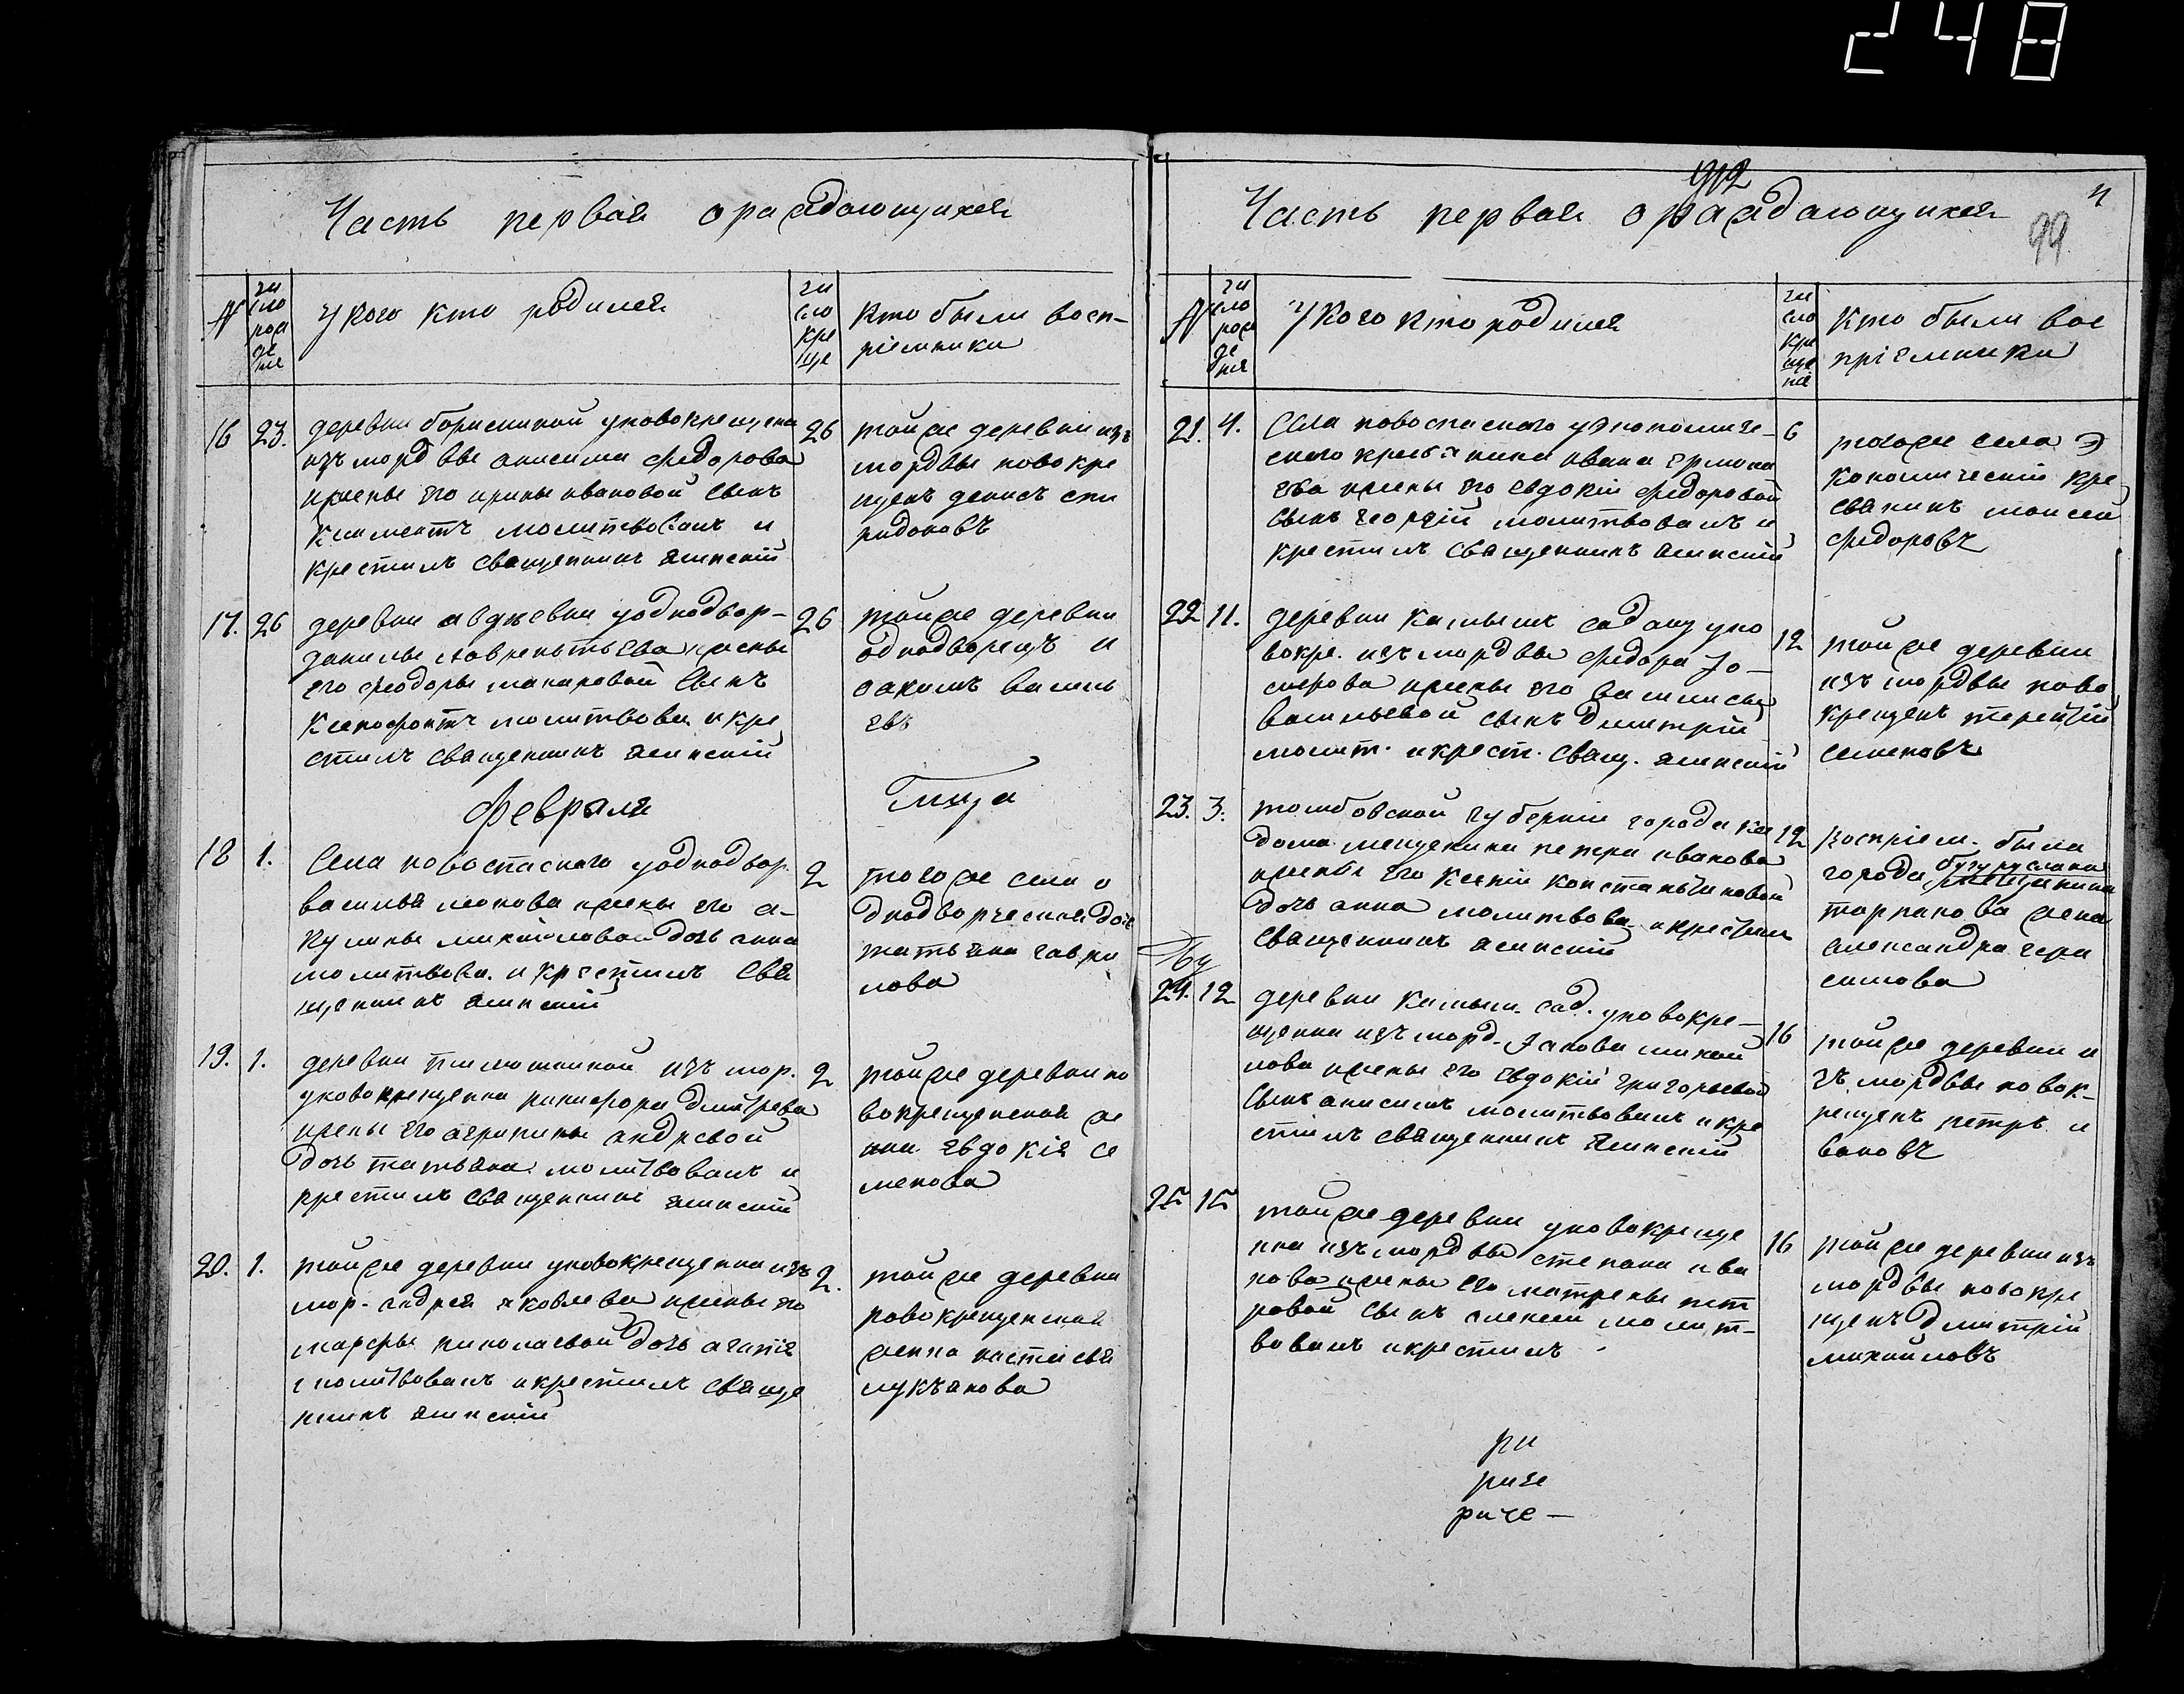 248
Часть первая о раждающихся
N
чи
сло
рож
де
ния
у кого кто родился
чи
сло
кре
ще
кто были восп-
ріемники
16
23.
деревни борискиной уновокрещена
изъ мордвы анисима федорова
ижены его ирины ивановой сынъ
климентъ молитвовалъ и
крестилъ священникъ ясинскій
26
тойже деревни изъ
мордвы новокре
щенъ денисъ спи
ридоновъ
17.
26
деревни авдѣевки уоднодвор-
данилы лаврентьева ижены
его феодоры макаровой сынъ
ксенофонтъ молитвова. икре
стилъ священникъ ясинскій
26
тойже деревни
однодворецъ и
оакимъ василь
евъ
февраля
18
1.
села новоспаского уоднодвор.
василья леонова ижены его а-
кулины михаиловой дочь анна
молитвова. и крестилъ свя
щенникъ ясинскій
2
тогоже села о
днодворческая доч
татьяна гаври
лова
19.
1.
деревни изъ мор.
уновокрещенна никифора дмитрева
ижены его агрипины андревой
дочь татьяна. молитвовалъ и
крестилъ священникъ ясинскій
2
тойже деревни но
вокрещенская же
нка евдокія се
менова
20.
1.
тойже деревни уновокрещенна изъ
мор. андрея яковлева ижены его
марфы николаевой дочь агапія
молитвовалъ икрестилъ свяще
нникъ ясинскій
2.
тойже деревни
новокрещенская
женка настасья
лукъянова
912
4
99
Часть первая о раждающихся
N
чи
сло
рож
де
ния
у кого кто родился
чи
сло
кре
ще
нія
кто были вос
пріемники
21.
4.
села новоспаского уэкономиче-
ского крестьянина ивана ермола
ева ижены его евдокіи федоровой
сынъ георгій молитвовалъ и
крестилъ священникъ ясинскій
6
тогоже села э
кономическій кре
стянинъ моисей
федоровъ
22
11.
деревни камышъ садакъ уно
вокре. изъ мордвы федора
ижены его василисы
васильевой сынъ дмитрій
молит. икрест. свящ. ясинскій
12
тойже деревни
изъ мордвы ново
крещенъ терентій
семеновъ
23.
3.
томбовской губерніи города ка
дома мещенина петра иванова
ижены его ксеніи константиновой
дочь анна молитвова. икрестилъ
священникъ ясинскій
12
воспріем. была
города бугуруслана
мещенина
торпакова жена
александра гера
симова
24.
12
деревни камыш. сад. уновокре-
щенна изъ морд. Іакова михаи
лова ижены его евдокіи григорьевой
сынъ анисимъ молитвовалъ икре
стилъ священникъ ясинскій
16
тойже деревни и
зъ мордвы новок-
рещенъ петръ и
вановъ
25
15
тойже деревни уновокреще
нна изъ мордвы степана ива
нова ижены его матрены пет
ровой сынъ алексей молит-
вовалъ икрестилъ.
16
тойже деревни изъ
мордвы новокре
щенъ дмитрій
михаиловъ